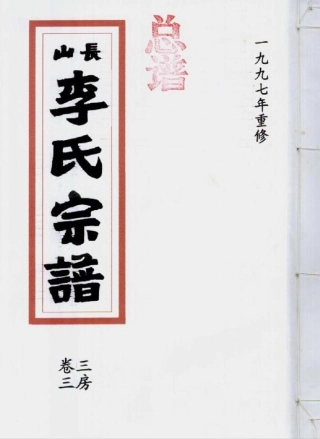 一九九七年重修
总谱
長山
李氏宗譜
三房
卷三